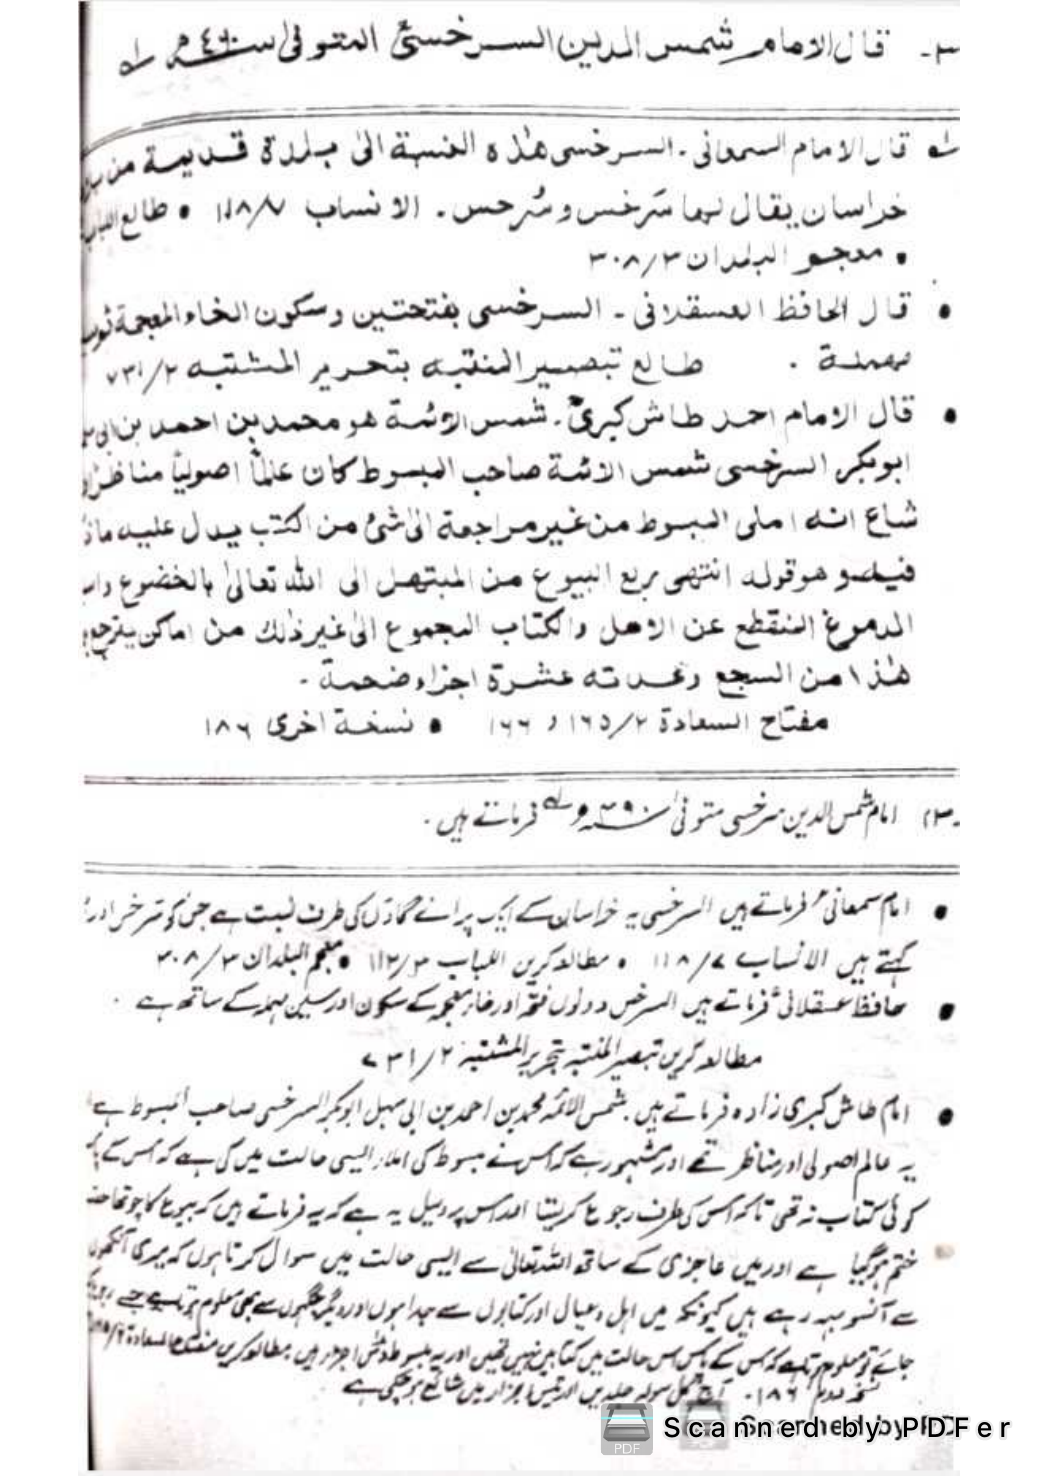 ٣۔ قال الامام شمس الدين السرخسیؒ المتوفى سنة ٤٩٠ھ
قال الامام السمعانی۔ السرخسی هذه النسبة الى بلدة قديمة من
خراسان يقال لها سَرخس و سُرخس۔ الانساب ١١٨/٧ • طالع
• معجم البلدان ٣٠٨/٣
• قال الحافظ العسقلانی۔ السرخسی بفتحتين وسكون الخاء المعجمة ثم
مهملة . طالع تبصير المنتبه بتحرير المشتبه ٧٣١/٢
• قال الامام احمد طاش كبریؒ۔ شمس الائمة هو محمد بن احمد بن ابی
ابوبكر السرخسی شمس الائمة صاحب المبسوط كان عالمًا اصوليًا مناظرًا
شاع انه املى المبسوط من غير مراجعة الى شئ من الكتب يدل عليه ما
فيه و هو قوله انتهى ربع البيوع من المبتهل الى الله تعالى بالخضوع
الدموع المنقطع عن الاهل والكتاب المجموع الى غير ذلك من اماكن
هذا من السجع وعدته عشرة اجزاء ضخمة۔
مفتاح السعادة ١٦٥/٢ و ١٦٦ • نسخة اخرى ١٨٦
(٣۔ امام شمس الدین سرخسی متوفی فرماتے ہیں۔
• امام سمعانیؒ فرماتے ہیں السرخسی یہ خراسان کے ایک پرانے گاؤں کی طرف نسبت ہے جس کو سرخس اور
کہتے ہیں الانساب ١١٨/٧ • مطالعہ کریں اللباب ١١٢/٢ • معجم البلدان ٣٠٨/٣
• حافظ عسقلانیؒ فرماتے ہیں السرخس دونوں فتحہ اور خاء معجمہ کے سکون اور سین مہملہ کے ساتھ ہے ۔
مطالعہ کریں تبصیر المنتبہ بتحریر المشتبہ ٧٣١/٢
• امام طاش کبری زادہ فرماتے ہیں۔ شمس الائمہ محمد بن احمد بن ابی سہل ابوبکر السرخسی صاحب المبسوط ہے
یہ عالم اصولی اور مناظر تھے اور مشہور ہے کہ اس نے مبسوط کی املاء ایسی حالت میں کی ہے کہ اس کے
کوئی کتاب نہ تھی تاکہ اس کی طرف رجوع کر لیتا اور اس پر دلیل یہ ہے کہ یہ فرماتے ہیں کہ بیوع کا چوتھا حصہ
ختم ہوگیا ہے اور میں عاجزی کے ساتھ اللہ تعالیٰ سے ایسی حالت میں سوال کرتا ہوں کہ میری آنکھوں
سے آنسو بہہ رہے ہیں کیونکہ میں اہل و عیال اور کتابوں سے جدا ہوں اور دیگر جگہوں سے بھی معلوم ہوتا ہے
جائے تو معلوم ہوتا ہے کہ اس کے پاس اس حالت میں کتابیں نہیں تھیں اور یہ مبسوط اجزاء ہیں۔ مطالعہ کریں مفتاح السعادة
نسخہ دوم ١٨٦۔ آج کل سولہ جلدیں اور تیس اجزاء میں شائع ہوچکی ہے
Scanned by PDFer